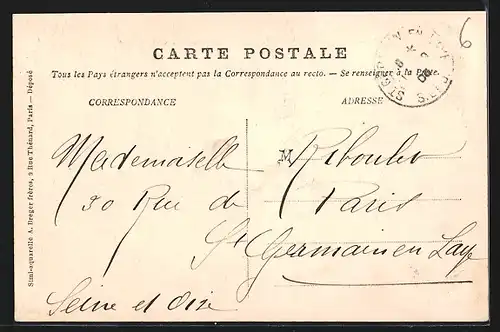 6
CARTE POSTALE
Tous les Pays étrangers n'acceptent pas la Correspondance au recto. — Se renseigner à la Poste.
CORRESPONDANCE
ADRESSE
Mademoiselle M Riboulet
30 Rue de Paris
St Germain en Laye
Seine et Oise
Simi-aquarelle A. Breger frères, 9 Rue Thénard, Paris — Déposé